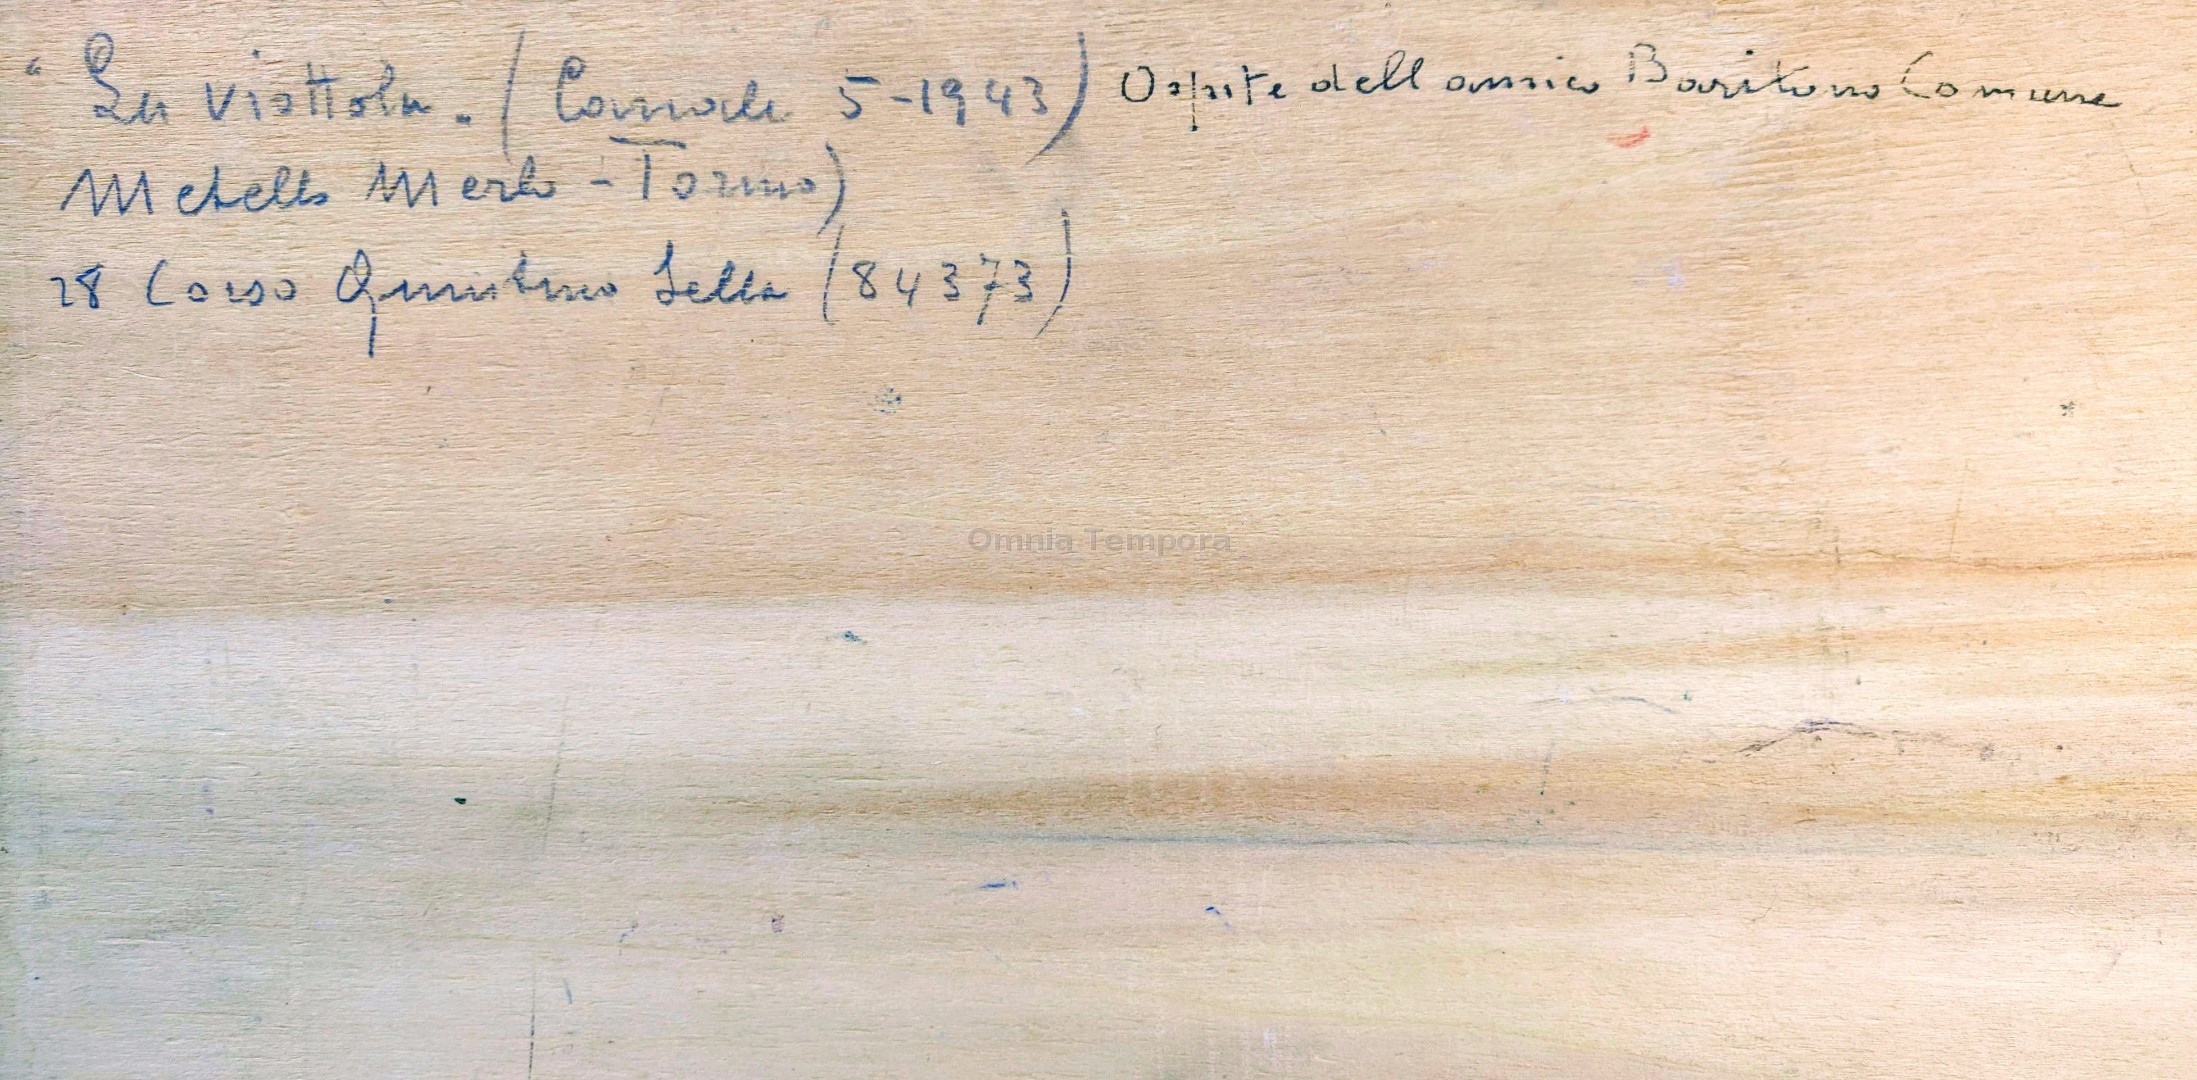 "La viottola. (Canale 5-1943) Ospite dell amico Baritono Comune
Metello Merlo - Torino)
28 Corso Quintino Sella (84373)
Omnia Tempora